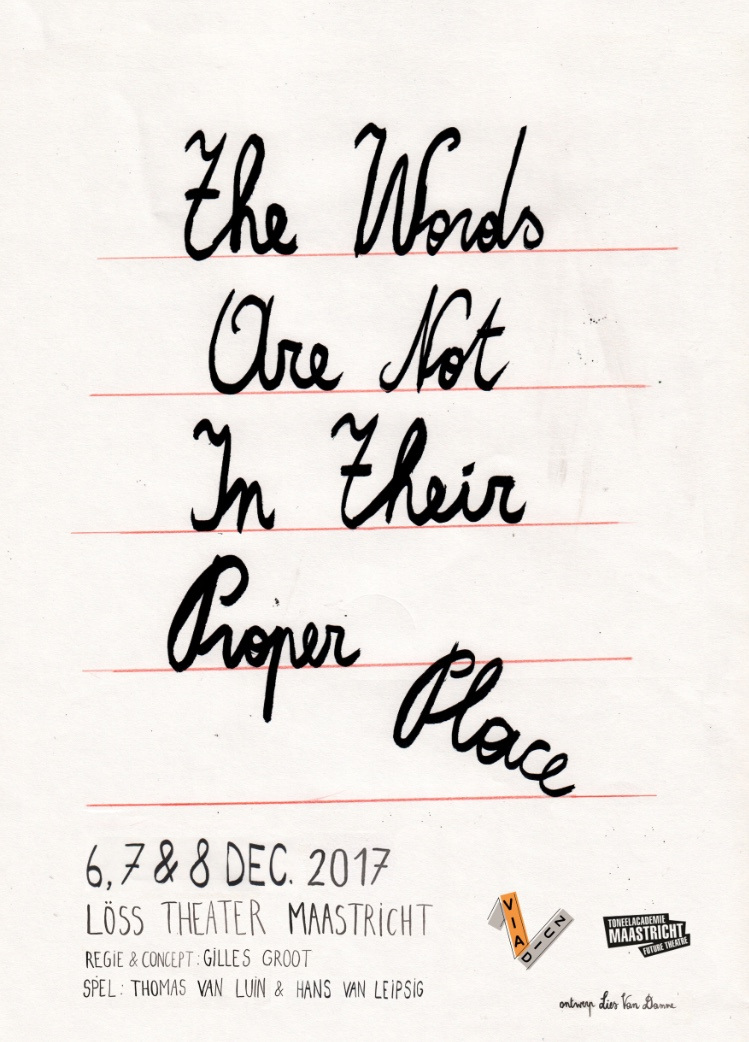 The Words
Are Not
In Their
Proper
Place
6, 7 & 8 DEC. 2017
LÖSS THEATER MAASTRICHT
REGIE & CONCEPT: GILLES GROOT
SPEL: THOMAS VAN LUIN & HANS VAN LEIPSIG
VIA ZUID
TONEELACADEMIE
MAASTRICHT
FUTURE THEATRE
ontwerp Lies Van Damme